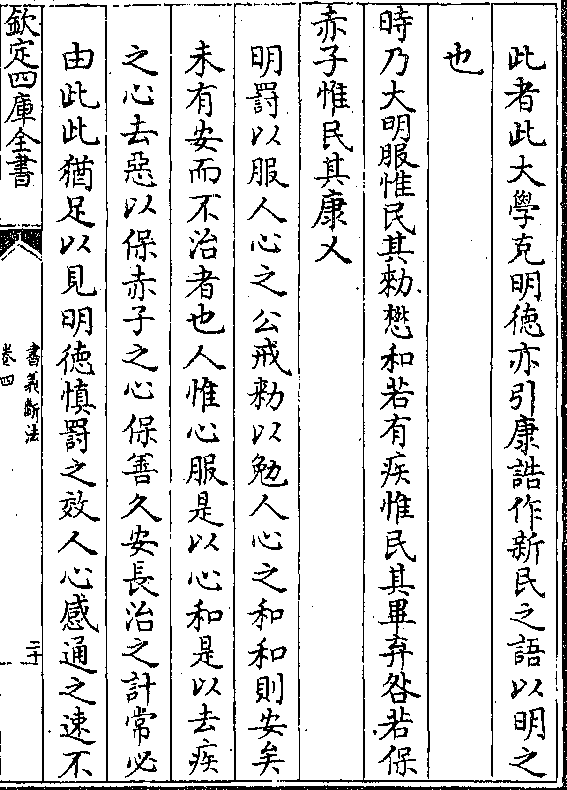 此者此大學克明德亦引康誥作新民之語以明之
也
時乃大明服惟民其勑懋和若有疾惟民其畢弃咎若保
赤子惟民其康乂
明罰以服人心之公戒勑以勉人心之和和則安矣
未有安而不治者也人惟心服是以心和是以去疾
之心去惡以保赤子之心保善久安長治之計常必
由此此猶足以見明德慎罰之效人心感通之速不
欽定四庫全書
書義斷法
卷四
二十